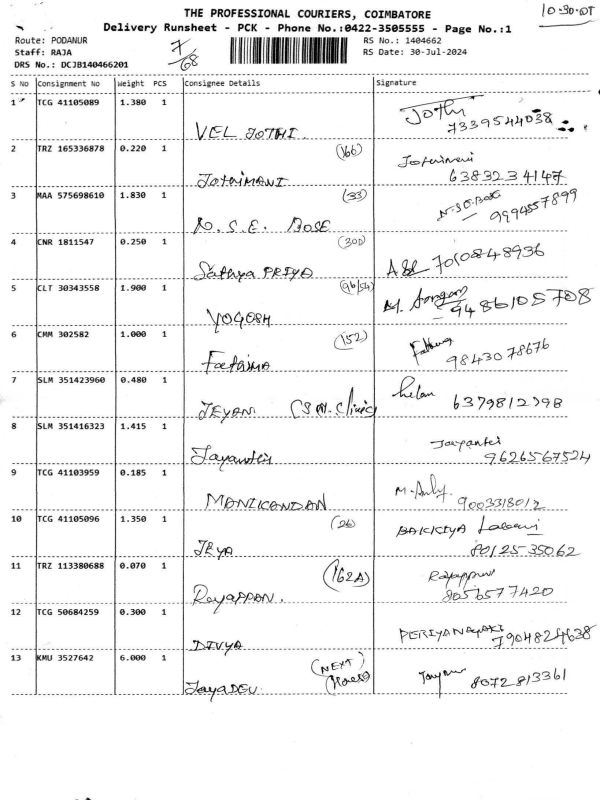 THE PROFESSIONAL COURIERS, COIMBATORE
10-30-07
Delivery Runsheet - PCK - Phone No.:0422-3505555 - Page No.:1
Route: PODANUR
7/68
RS No.: 1404662
Staff: RAJA
RS Date: 30-Jul-2024
DRS No.: DCJB140466201
S No Consignment No Weight PCS Consignee Details Signature
1 TCG 41105089 1.380 1 VEL JOTHI Jothi
7339544038
2 TRZ 165336878 0.220 1 (166) Jothimani
JOTHIMANI 6383234147
3 MAA 575698610 1.830 1 (33)
N. S. E. BOSE 9994557899
4 CNR 1811547 0.250 1 (30D)
Sathya PRIYA 7010848936
5 CLT 30343558 1.900 1 (96/54)
YOGOSH 9486105708
6 CMM 302582 1.000 1 (152)
Fathima 9843078676
7 SLM 351423960 0.480 1 Helan
JEYAN (S M. Clinic) 6379812798
8 SLM 351416323 1.415 1 Jayanthi
Jayanthi 9626567524
9 TCG 41103959 0.185 1
MANIKANDAN 9003318012
10 TCG 41105096 1.350 1 (26) BAKKIYA
JEYA 80125-35062
11 TRZ 113380688 0.070 1 (162A) Rayappan
RayAPPAN. 8056577420
12 TCG 50684259 0.300 1 PERIYANAYAKI
DIVYA 7904824638
13 KMU 3527642 6.000 1 (NEXT)
JayaDEV 8072813361